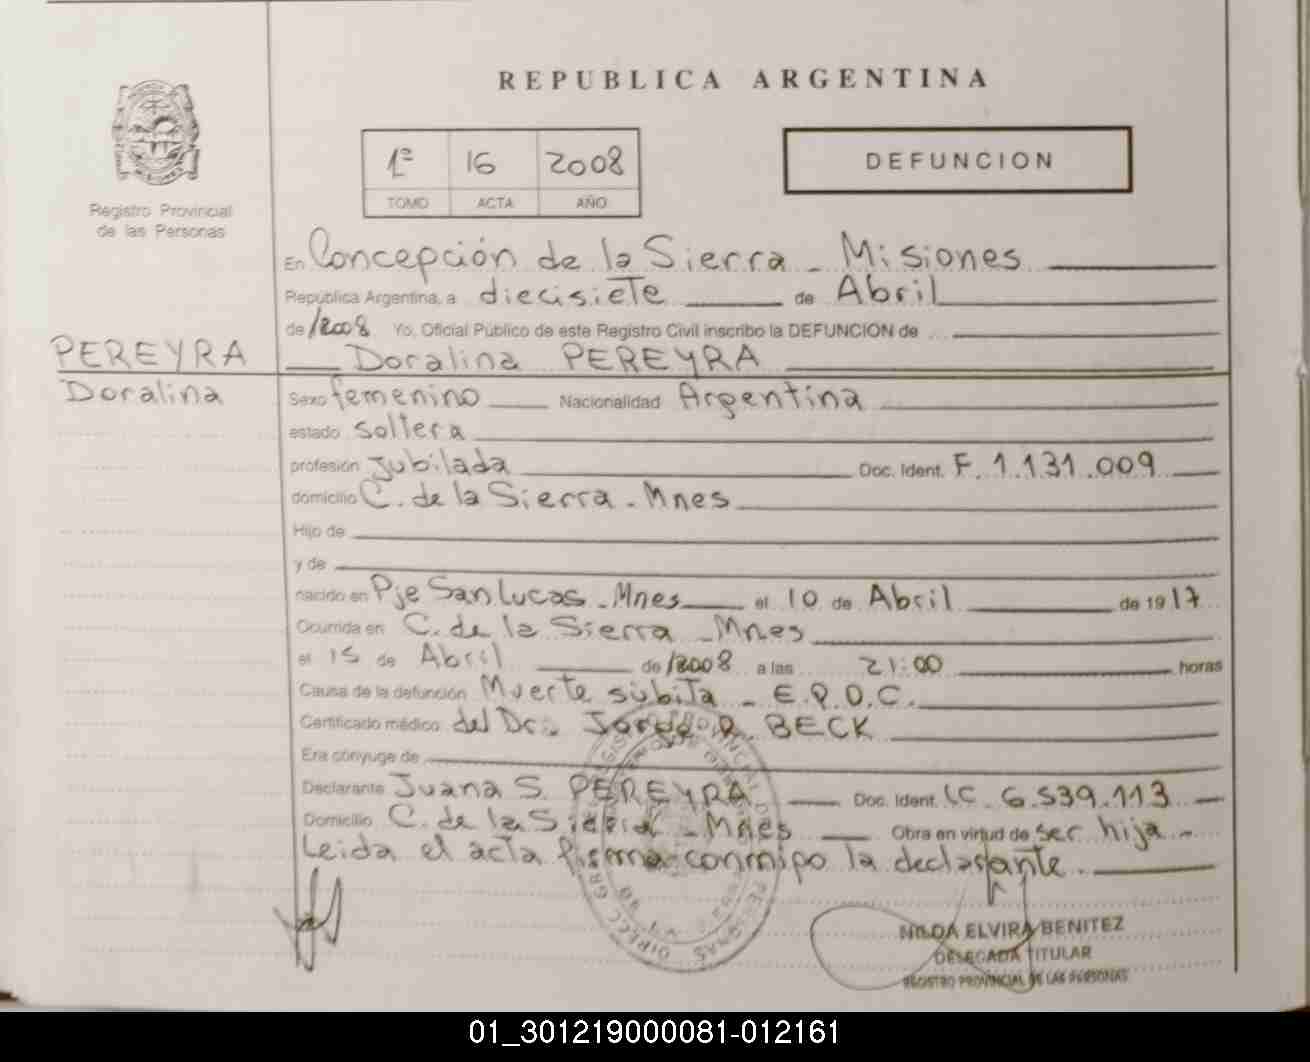 REPUBLICA ARGENTINA
1º 16 2008
TOMO ACTA AÑO
DEFUNCION
Registro Provincial
de las Personas
En Concepción de la Sierra - Misiones
República Argentina, a diecisiete de Abril
de /2008 Yo, Oficial Público de este Registro Civil inscribo la DEFUNCION de ...
PEREYRA Doralina PEREYRA
Doralina
Sexo femenino Nacionalidad Argentina
estado soltera
profesión Jubilada Doc. Ident. F. 1.131.009
domicilio C. de la Sierra - Mnes
Hijo de
y de
nacido en Pje San Lucas - Mnes el 10 de Abril de 19 17
Ocurrida en C. de la Sierra - Mnes
el 15 de Abril de /2008 a las 21:00 horas
Causa de la defunción Muerte súbita - E.P.O.C.
Certificado médico del Dr. BECK
Era cónyuge de
Declarante Juana S. PEREYRA Doc. Ident. LC. 6.539.113
Domicilio C. de la Sierra - Mnes Obra en virtud de ser hija -
Leida el acta firma conmigo la declarante.
NILDA ELVIRA BENITEZ
DELEGADA TITULAR
REGISTRO PROVINCIAL DE LAS PERSONAS
01_301219000081-012161